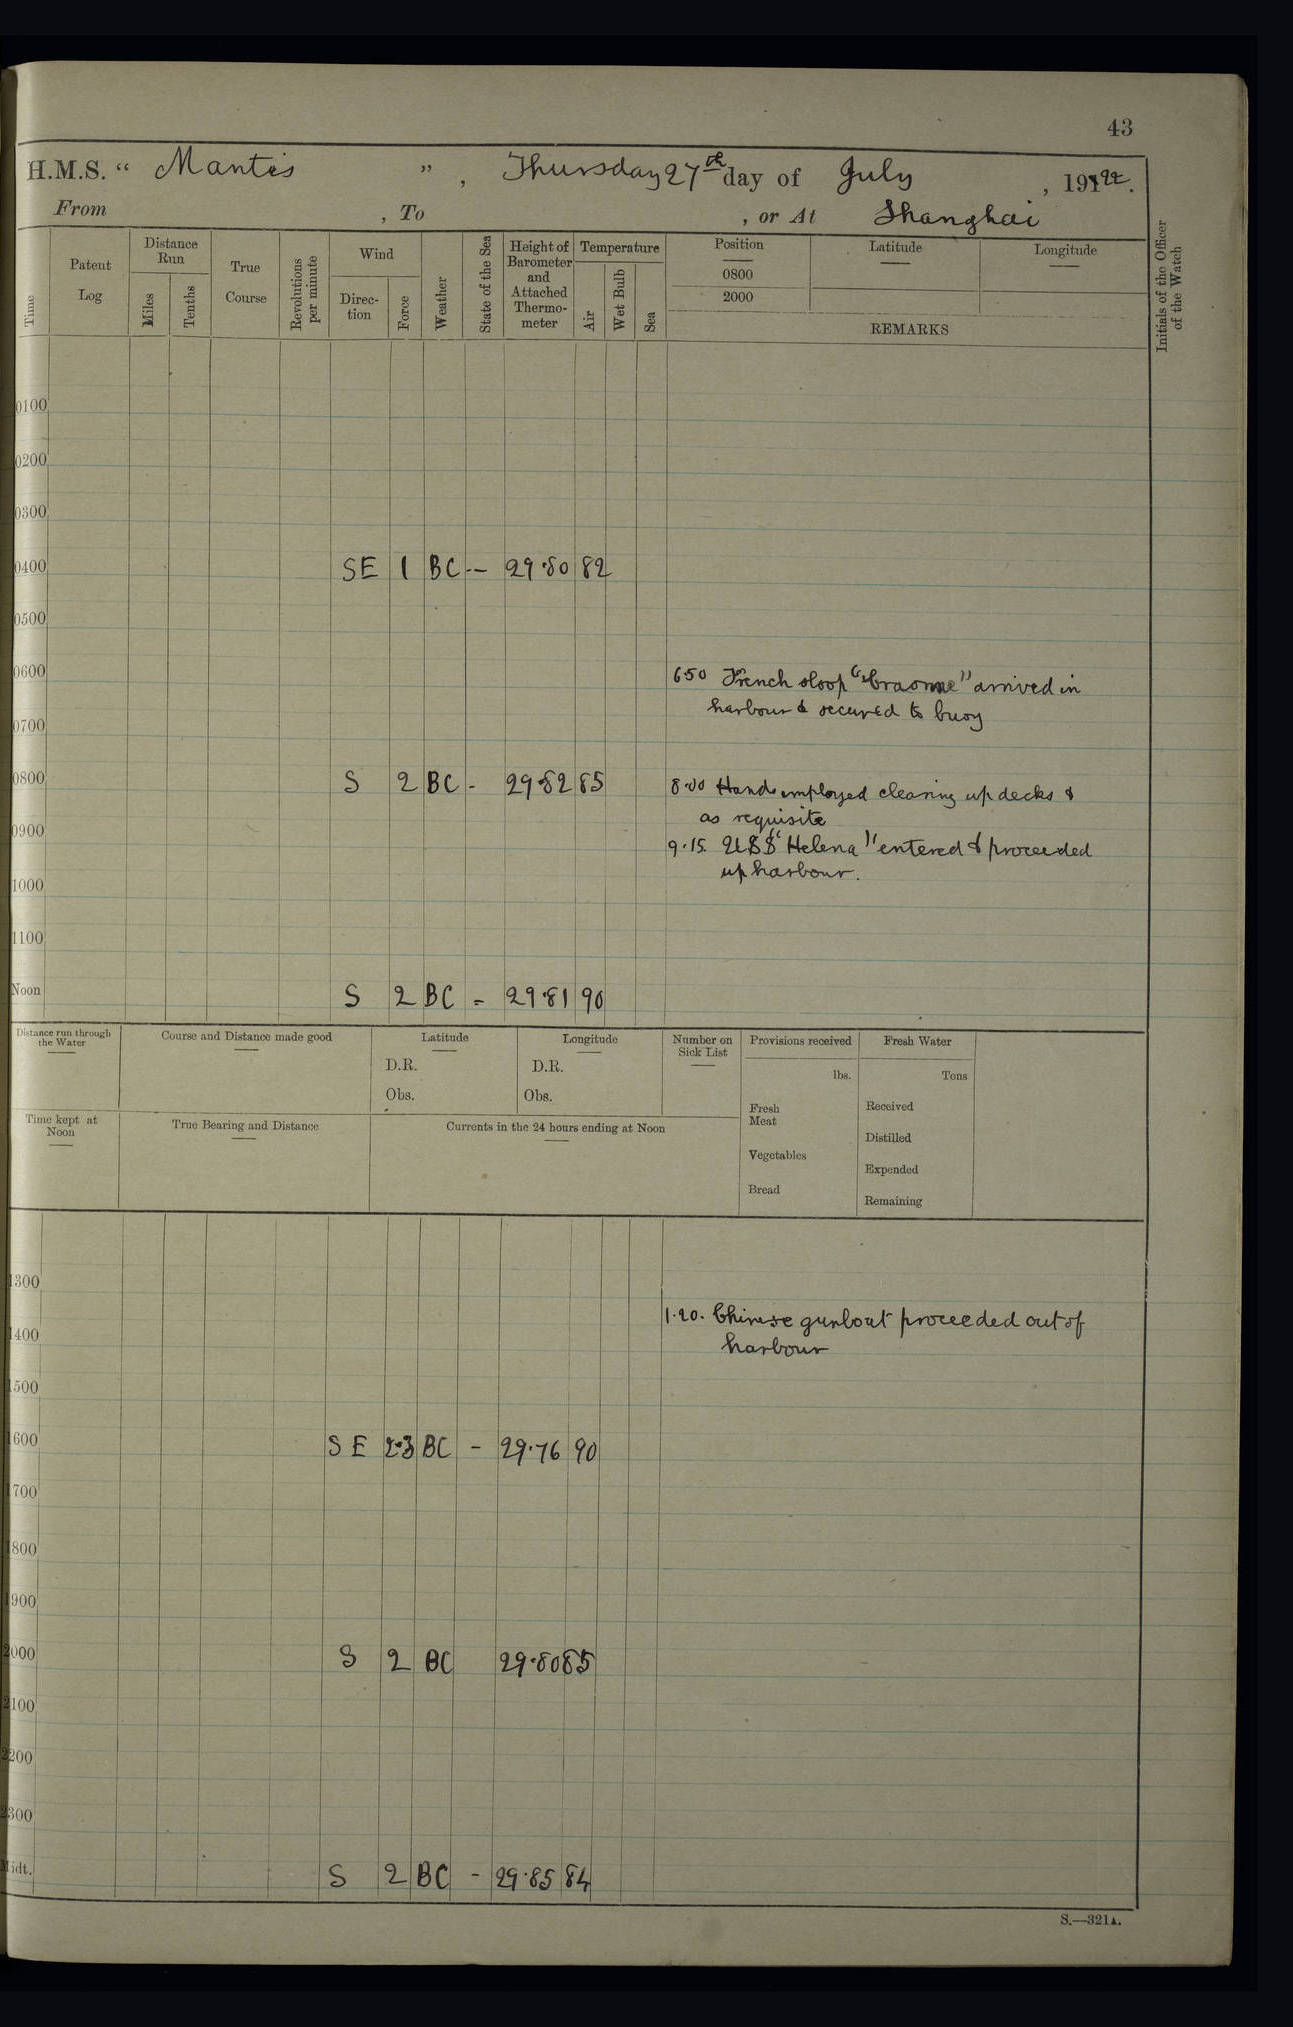 43
H.M.S. “ Mantis ” , Thursday 27th day of July , 1922.
From , To , or At Shanghai
Time
Patent Log
Distance Run
Miles
Tenths
True Course
Revolutions per minute
Wind
Direc-tion
Force
Weather
State of the Sea
Height of Barometer and Attached Thermo-meter
Temperature
Air
Wet Bulb
Sea
Position
0800
2000
Latitude
Longitude
REMARKS
Initials of the Officer of the Watch
0100
0200
0300
0400 SE 1 BC -- 29.80 82
0500
0600
650 French sloop "Craonne" arrived in
harbour & secured to buoy
0700
0800 S 2 BC - 29.82 85
8.00 Hands employed clearing up decks &
as requisite
0900
9.15. USS "Helena" entered & proceeded
up harbour.
1000
1100
Noon S 2 BC = 29.81 90
Distance run through the Water
Course and Distance made good
Latitude
D.R.
Obs.
Longitude
D.R.
Obs.
Number on Sick List
Provisions received
lbs.
Fresh Meat
Vegetables
Bread
Fresh Water
Tons
Received
Distilled
Expended
Remaining
Time kept at Noon
True Bearing and Distance
Currents in the 24 hours ending at Noon
1300
1.20. Chinese gunboat proceeded out of
harbour
1400
1500
1600 SE 2.3 BC - 29.76 90
1700
1800
1900
2000 S 2 BC 29.80 85
2100
2200
2300
Midt. S 2 BC - 29.85 84
S.—321A.